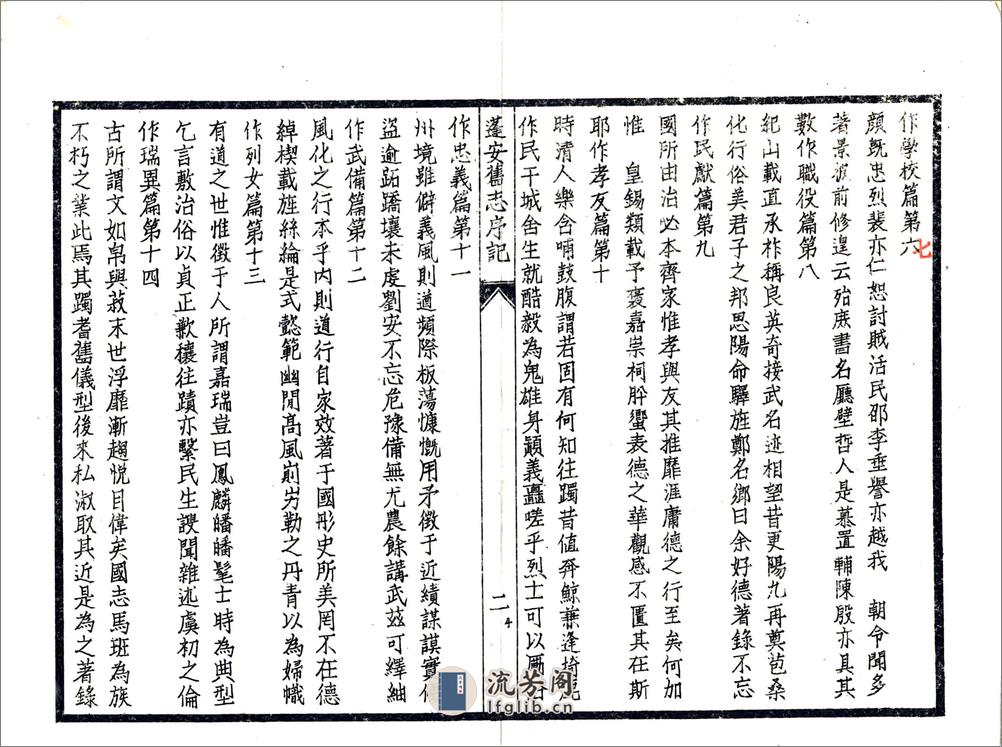 作學校篇第六
七
顏既忠烈裴亦仁恕討賊活民邵李垂譽亦越我 朝令聞多
著景彼前修遑云殆庶書名廳壁哲人是慕置輔陳殷亦具其
數作職役篇第八
紀山載直承祚稱良英奇接武名迹相望昔更陽九再奠苞桑
化行俗美君子之邦思陽命驛旌鄭名鄉曰余好德著錄不忘
作民獻篇第九
國所由治必本齊家惟孝與友其推靡涯庸德之行至矣何加
惟 皇錫類載予褒嘉崇祠肸蠁表德之華觀感不匱其在斯
耶作孝友篇第十
時清人樂含哺鼓腹謂若固有何知往躅昔值奔鯨兼逢掎
作民干城舍生就酷毅為鬼雄身顯義矗嗟乎烈士可以
蓬安舊志序記
二
4
作忠義篇第十一
州境雖僻義風則遒頻際板蕩慷慨用矛徵于近績謀謨實
盜逾跖蹻壤未虔劉安不忘危豫備無尤農餘講武茲可繹紬
作武備篇第十二
風化之行本乎內則道行自家效著于國彤史所美罔不在德
綽楔載旌絲綸是式懿範幽閒高風崱屴勒之丹青以為婦幟
作列女篇第十三
有道之世惟徵于人所謂嘉瑞豈曰鳳麟皤皤髦士時為典型
乞言敷治俗以貞正歉穰往蹟亦繫民生謏聞雜述虞初之倫
作瑞異篇第十四
古所謂文如帛與菽末世浮靡漸趨悅目偉矣國志馬班為族
不朽之業此焉其躅耆舊儀型後來私淑取其近是為之著錄
流芳阁
lfglib.cn